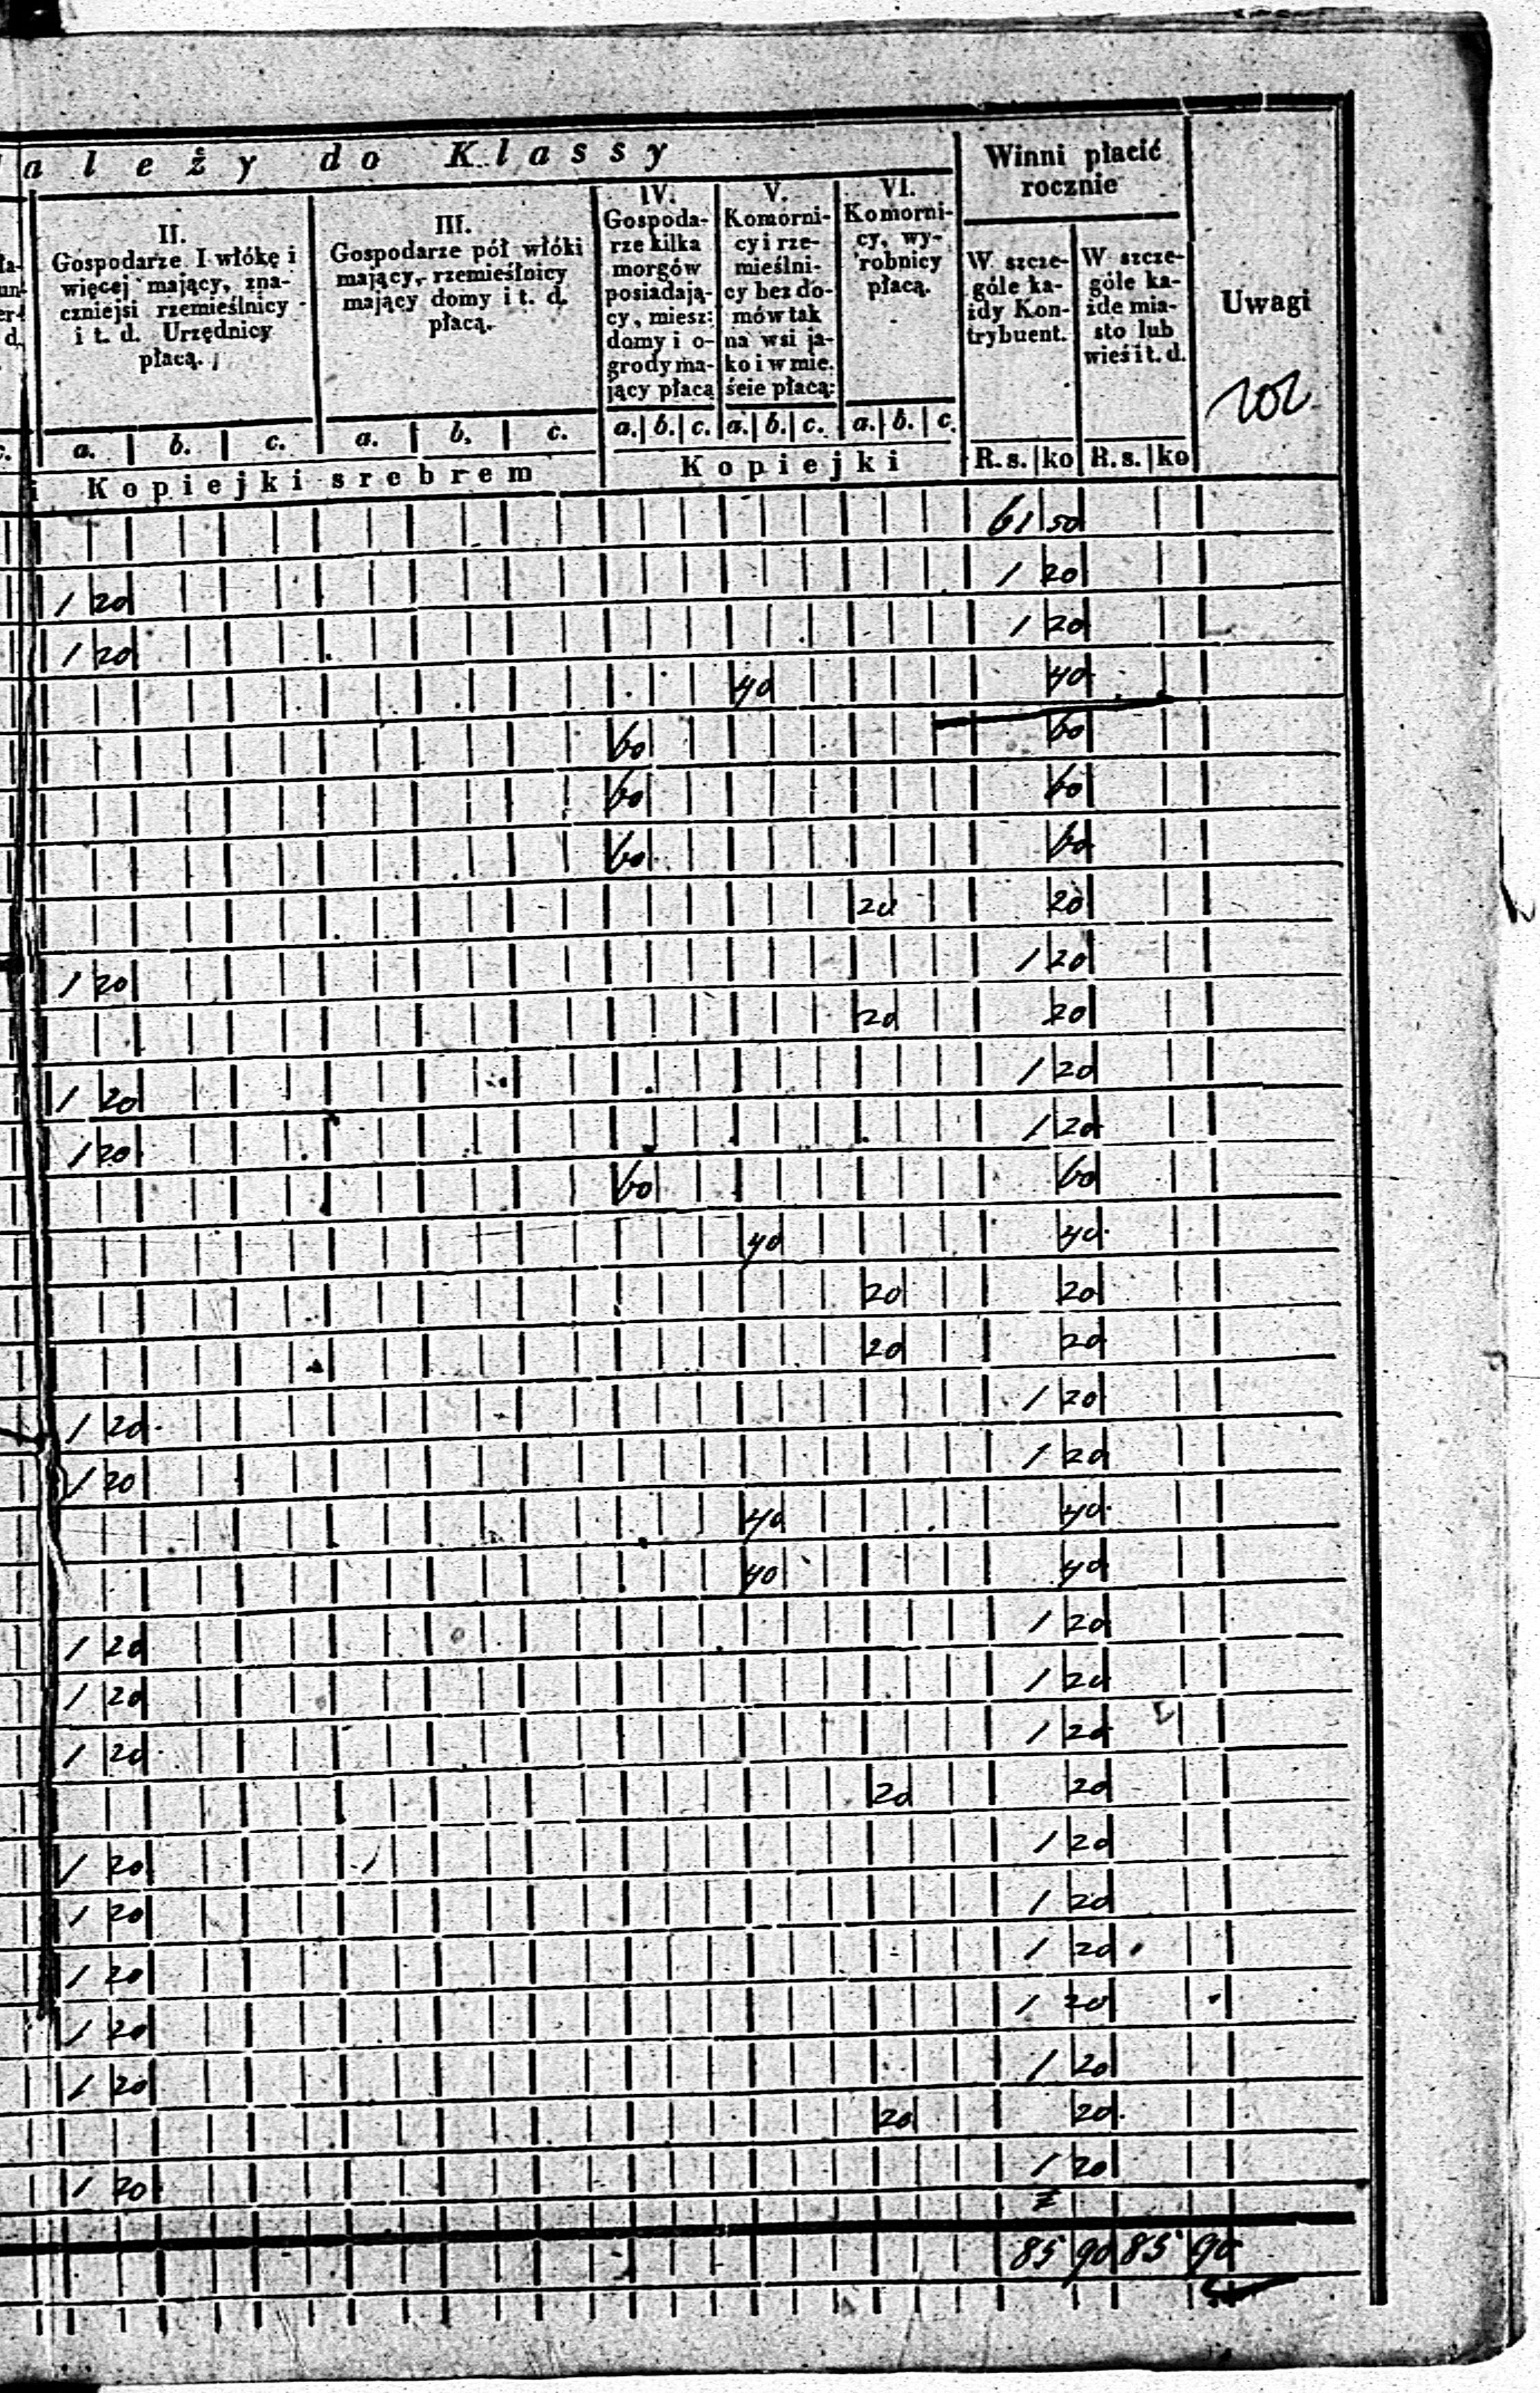 ależy do Klassy
Winni płacić
rocznie
II.
Gospodarze I włókę i
więcej mający, zna-
czniejsi rzemieślnicy
i t. d. Urzędnicy
płacą.
III.
Gospodarze pół włóki
mający, rzemieślnicy
mający domy i t. d.
płacą.
IV.
Gospoda-
rze kilka
morgów
posiadają-
cy, miesz:
domy i o-
grody ma-
jący płacą
V.
Komorni-
cy i rze-
mieślni-
cy bez do-
mów tak
na wsi ja-
ko i w mie.
ście płacą:
VI.
Komorni-
cy, wy-
robnicy
płacą.
W szcze-
góle ka-
żdy Kon-
trybuent.
W szcze-
góle ka-
żde mia-
sto lub
wieś i t. d.
Uwagi
202
a. b. c. a. b. c. a. b. c. a. b. c. a. b. c.
Kopiejki srebrem Kopiejki R. s. ko R. s. ko
61 50
1 20 1 20
1 20 1 20
40 40
60 60
60 60
60 60
20 20
1 20 1 20
20 20
1 20 1 20
1 20 1 20
60 60
40 40
20 20
20 20
1 20 1 20
1 20 1 20
40 40
40 40
1 20 1 20
1 20 1 20
1 20 1 20
20 20
1 20 1 20
1 20 1 20
1 20 1 20
1 20 1 20
1 20 1 20
20 20
1 20 1 20
85 90 85 90